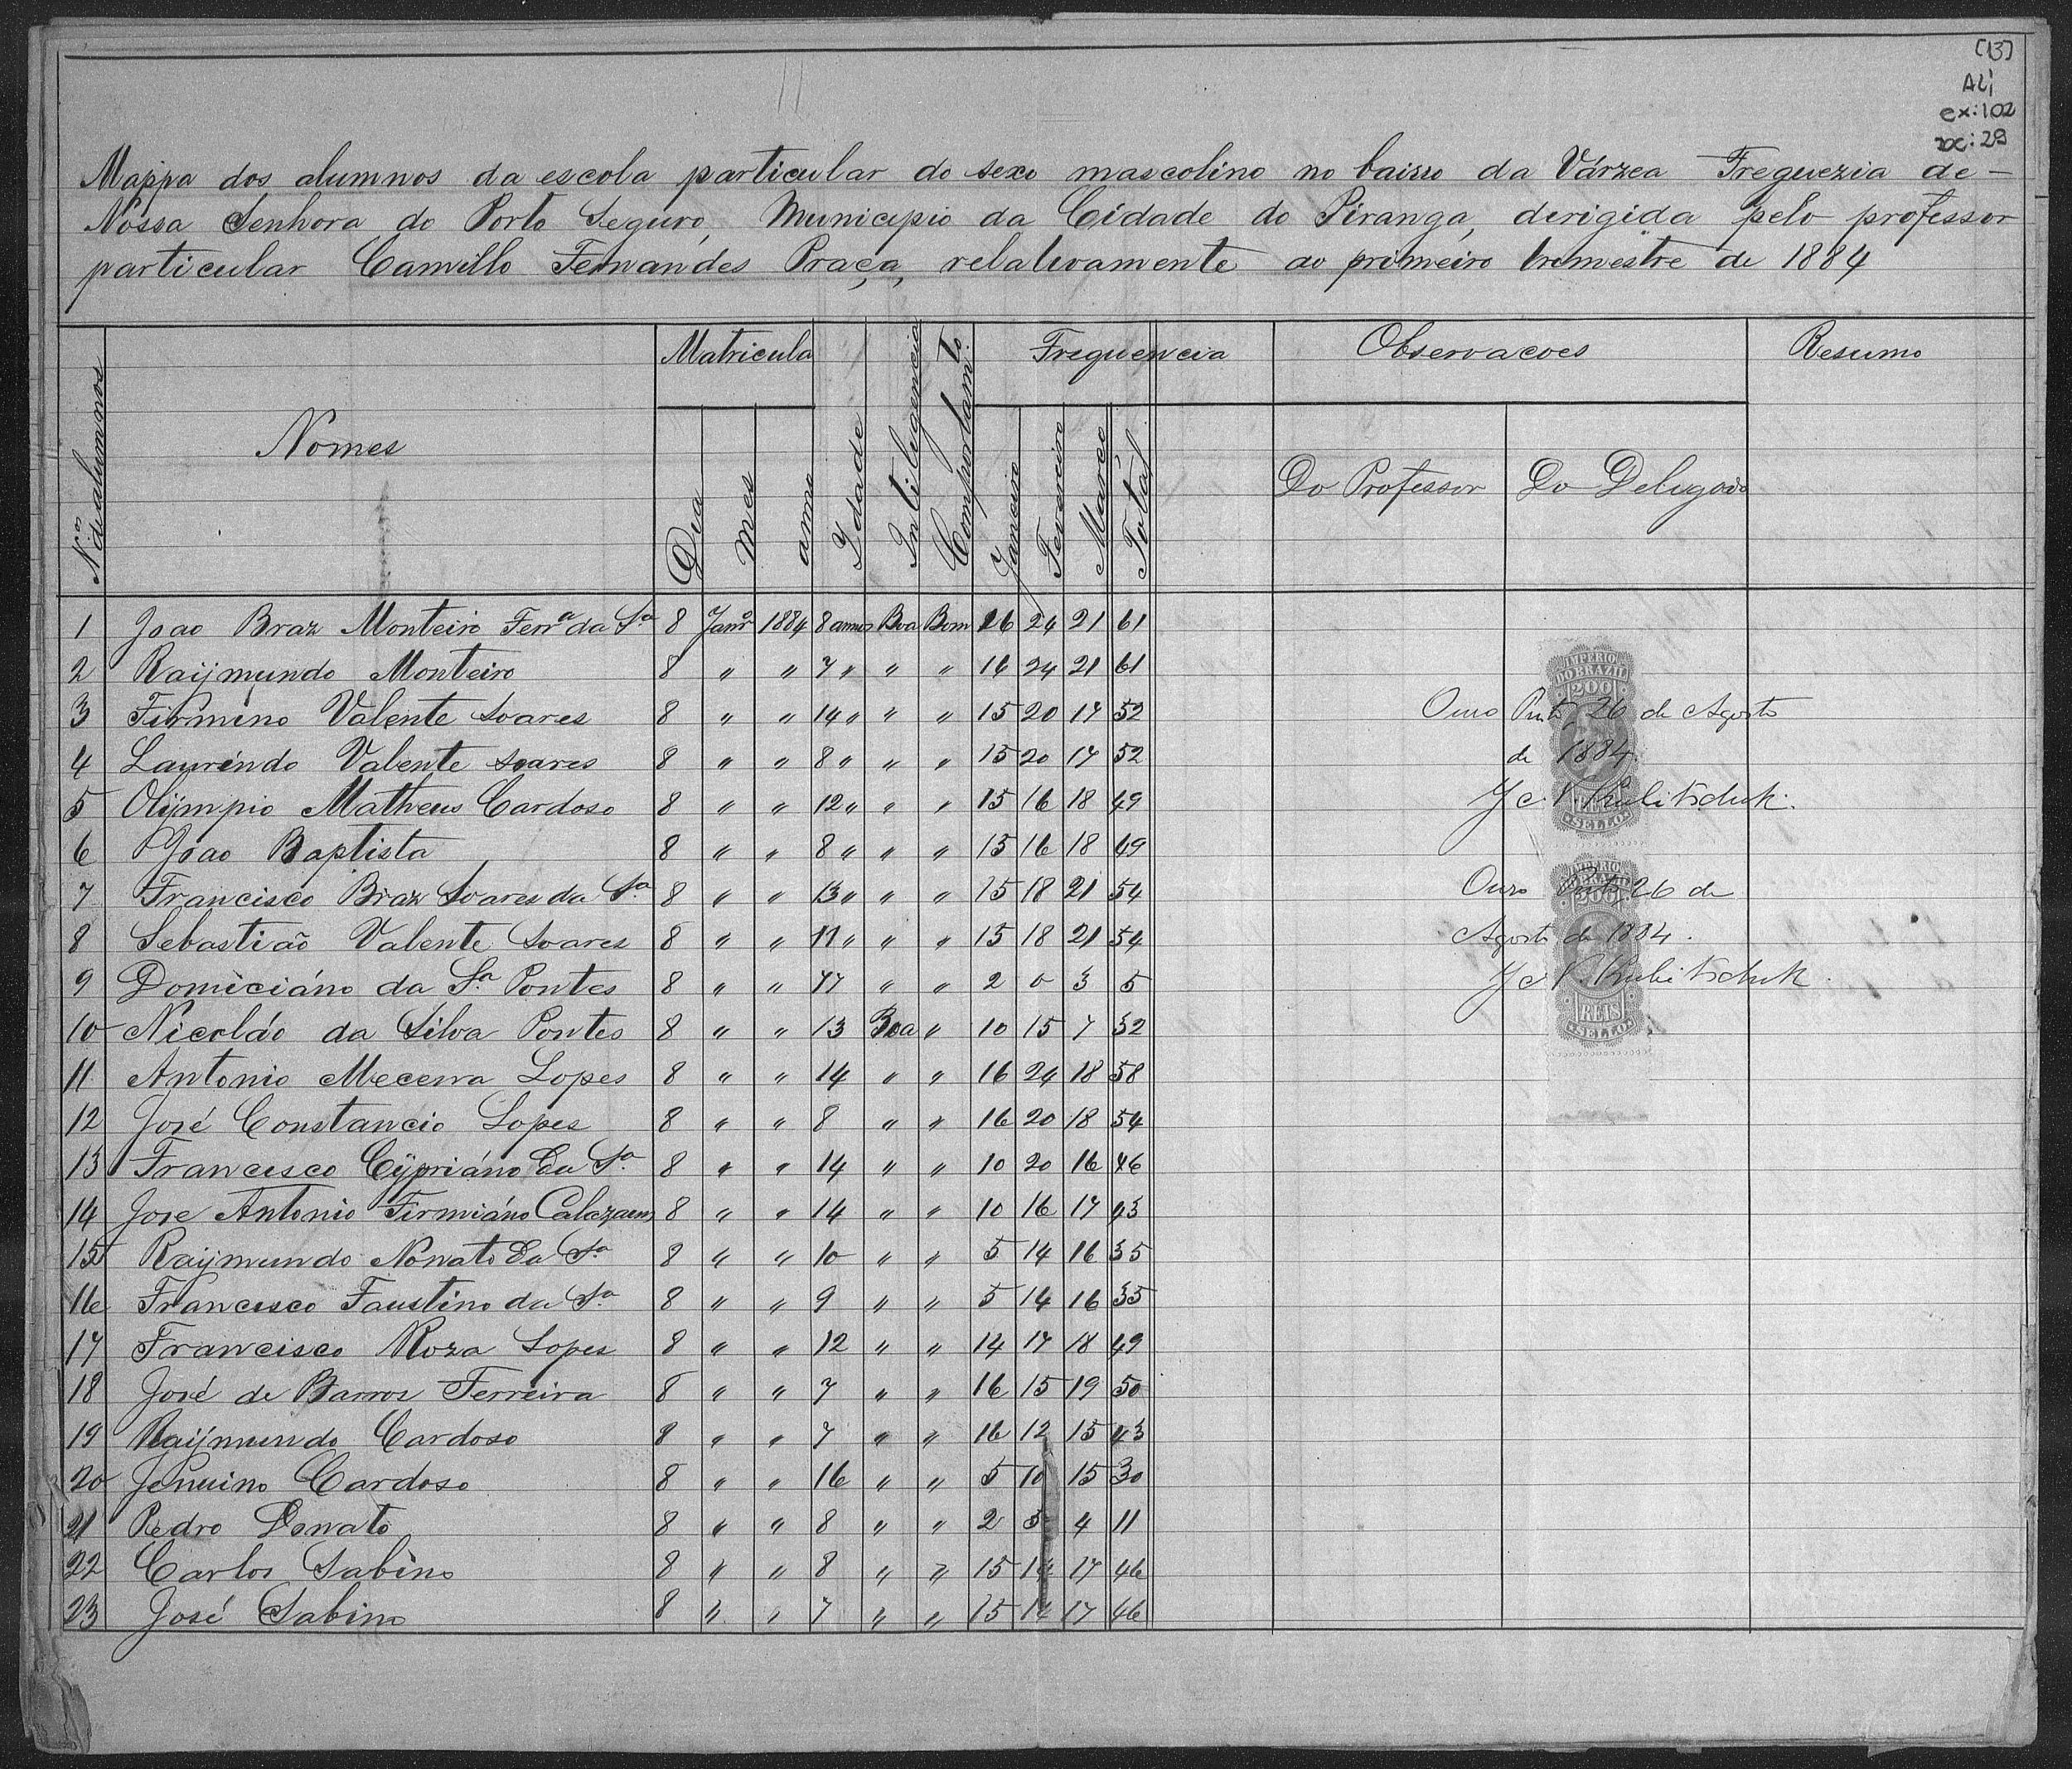 [13]
ALÍ
cx:102
Mappa dos alumnos da escola particular do sexo mascolino no bairro da Várzea Freguezia de –
Nossa Senhora do Porto Seguro, Municipio da Cidade do Piranga, derigida pelo professor
particular Camillo Fernandes Praça, relativamente ao primeiro trimestre de 1884
Nos de alumnos Nomes Matricula Dia Mes anno Idade Intiligencia Comportamto. Frequencia Janeiro Fevereiro Março Total Observacoes Do Professor Do Delegado Resumo
1 Joao Braz Monteiro Ferra da Sa 8 Janro 1884 8 annos Boa Bom 16 24 21 61
2 Raijmundo Monteiro 8 " " 7 " " " 16 24 21 61
3 Firmino Valente Soares 8 " " 14 " " " 15 20 17 52
4 Laurindo Valente Soares 8 " " 8 " " " 15 20 17 52
5 Olijmpio Matheus Cardoso 8 " " 12 " " " 15 16 18 49
6 Joao Baptista 8 " " 8 " " " 15 16 18 49
7 Francisco Braz Soares da Sa 8 " " 13 " " " 15 18 21 54
8 Sebastião Valente Soares 8 " " 11 " " " 15 18 21 54
9 Domiciáno da Sa Pontes 8 " " " " 2 0 3 5
10 Nicoláo da Silva Pontes 8 " " 13 Boa " 10 15 7 32
11 Antonio Lopes 8 " " 14 " " 16 24 18 58
12 José Constancio Lopes 8 " " 8 " " 16 20 18 54
13 Francisco Cÿpriáno da Sa 8 " " 14 " " 10 20 16 46
14 Jose Antonio Firmiáno Calazans 8 " " 14 " " 10 16 17 43
15 Raijmundo Nonato da Sa 8 " " 10 " " 5 14 16 35
16 Francisco Faustino da Sa 8 " " 9 " " 5 14 16 35
17 Francisco Roza Lopes 8 " " 12 " " 14 17 18 49
18 José de Barros Ferreira 8 " " 7 " " 16 15 19 50
19 Raijmundo Cardoso 8 " " 7 " " 16 12 15 43
20 Jenuino Cardoso 8 " " 16 " " 5 10 15 30
21 Pedro Donato 8 " " 8 " " 2 5 4 11
22 Carlos Sabino 8 " " 8 " " 15 14 17 46
23 José Sabino 8 " " 7 " " 15 14 17 46
Ouro Preto, 26 de Agosto
de 1884.
J c. N. Kubitschek.
Ouro Preto, 26 de
Agosto de 1884.
J c. N. Kubitschek.
IMPERIO
DO BRAZIL
200
REIS
SELLO
IMPERIO
DO BRAZIL
200
REIS
SELLO